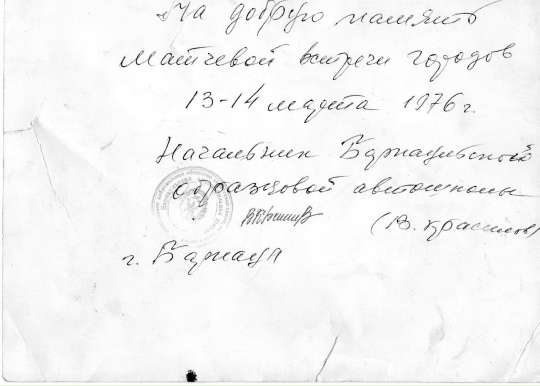 На добрую память
Матчевой встречи городов
13-14 марта 1976 г.
Начальник Барнаульской
образцовой автошколы
(В. Красилов)
г. Барнаул